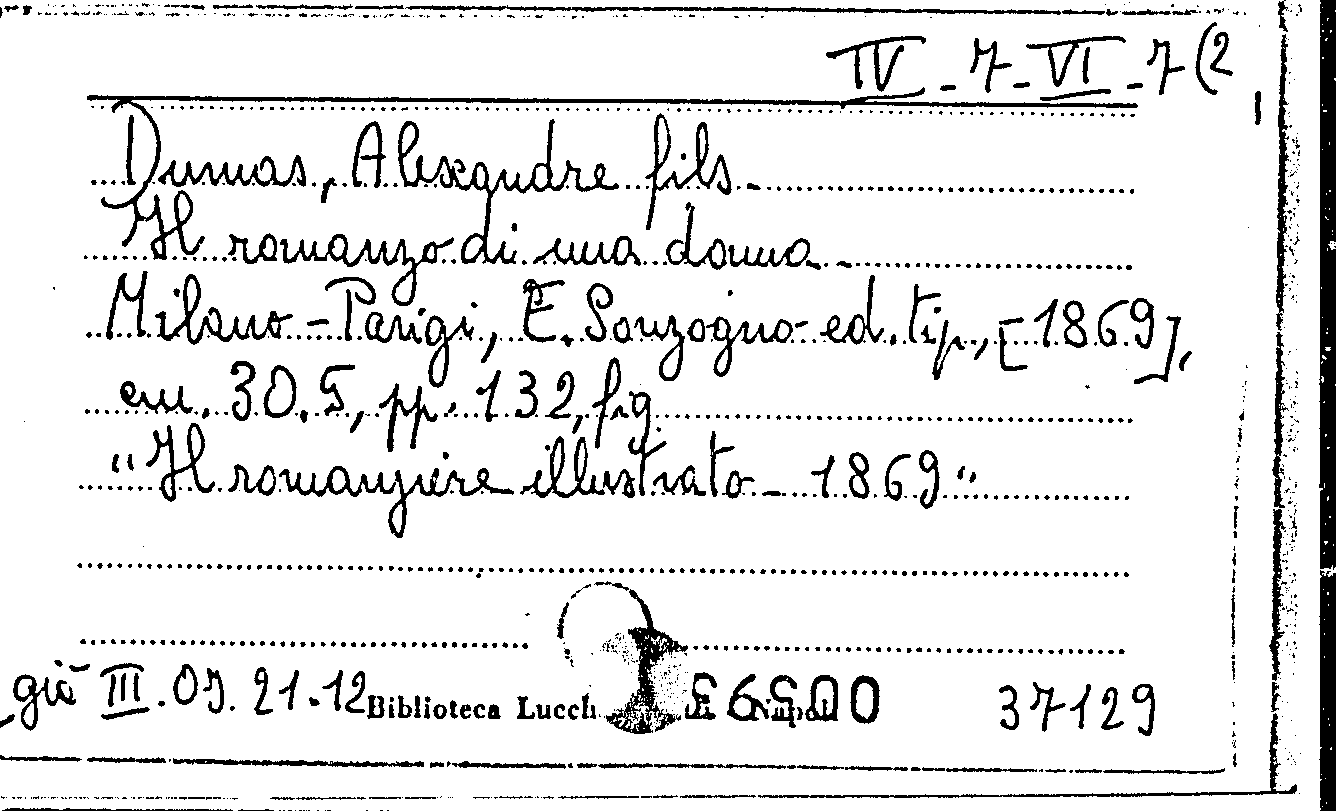 IV - 7 - VI - 7 (2
Dumas, Alexandre fils -
Il romanzo di una donna -
Milano - Parigi, E. Sonzogno ed. tip., [1869],
cm. 30.5, pp. 132, fig.
"Il romanziere illustrato - 1869"
già III. 09. 21. 12 Biblioteca Lucch 37129